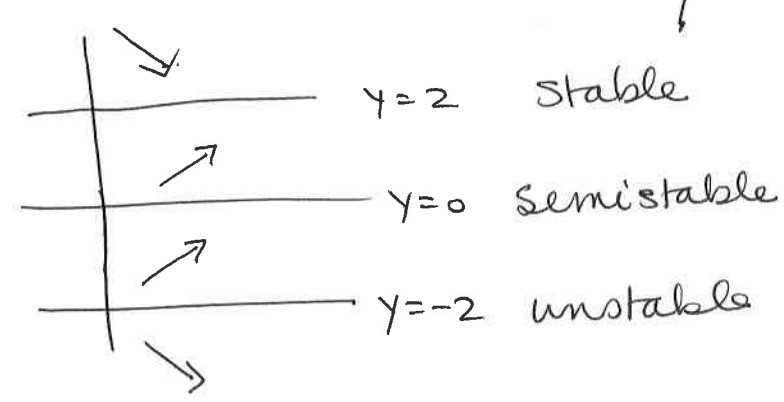 y=2 stable
y=0 semistable
y=-2 unstable